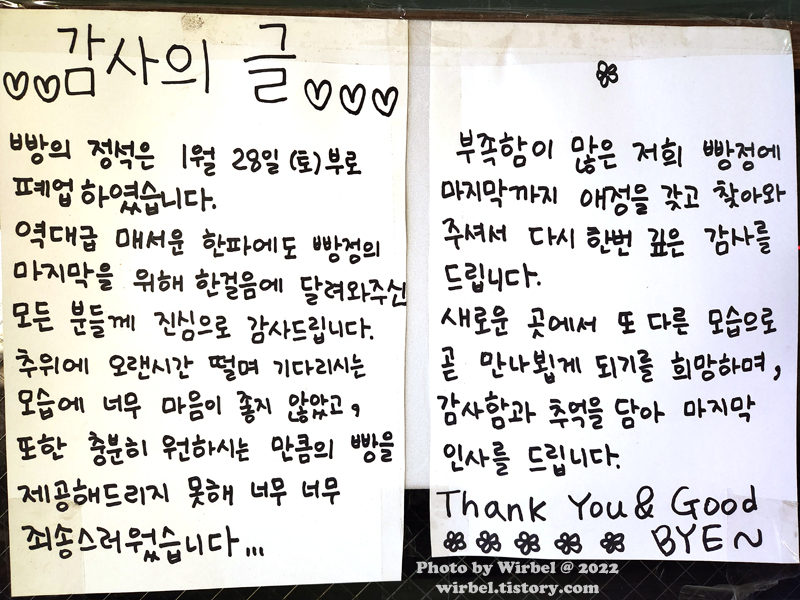 감사의 글
빵의 정석은 1월 28일 (토)부로
폐업하였습니다.
역대급 매서운 한파에도 빵정의
마지막을 위해 한걸음에 달려와주신
모든 분들께 진심으로 감사드립니다.
추위에 오랜시간 떨며 기다리시는
모습에 너무 마음이 좋지 않았고,
또한 충분히 원하시는 만큼의 빵을
제공해드리지 못해 너무 너무
죄송스러웠습니다...
부족함이 많은 저희 빵정에
마지막까지 애정을 갖고 찾아와
주셔서 다시 한번 깊은 감사를
드립니다.
새로운 곳에서 또 다른 모습으로
곧 만나뵙게 되기를 희망하며,
감사함과 추억을 담아 마지막
인사를 드립니다.
Thank You & Good
BYE~
Photo by Wirbel @ 2022
wirbel.tistory.com